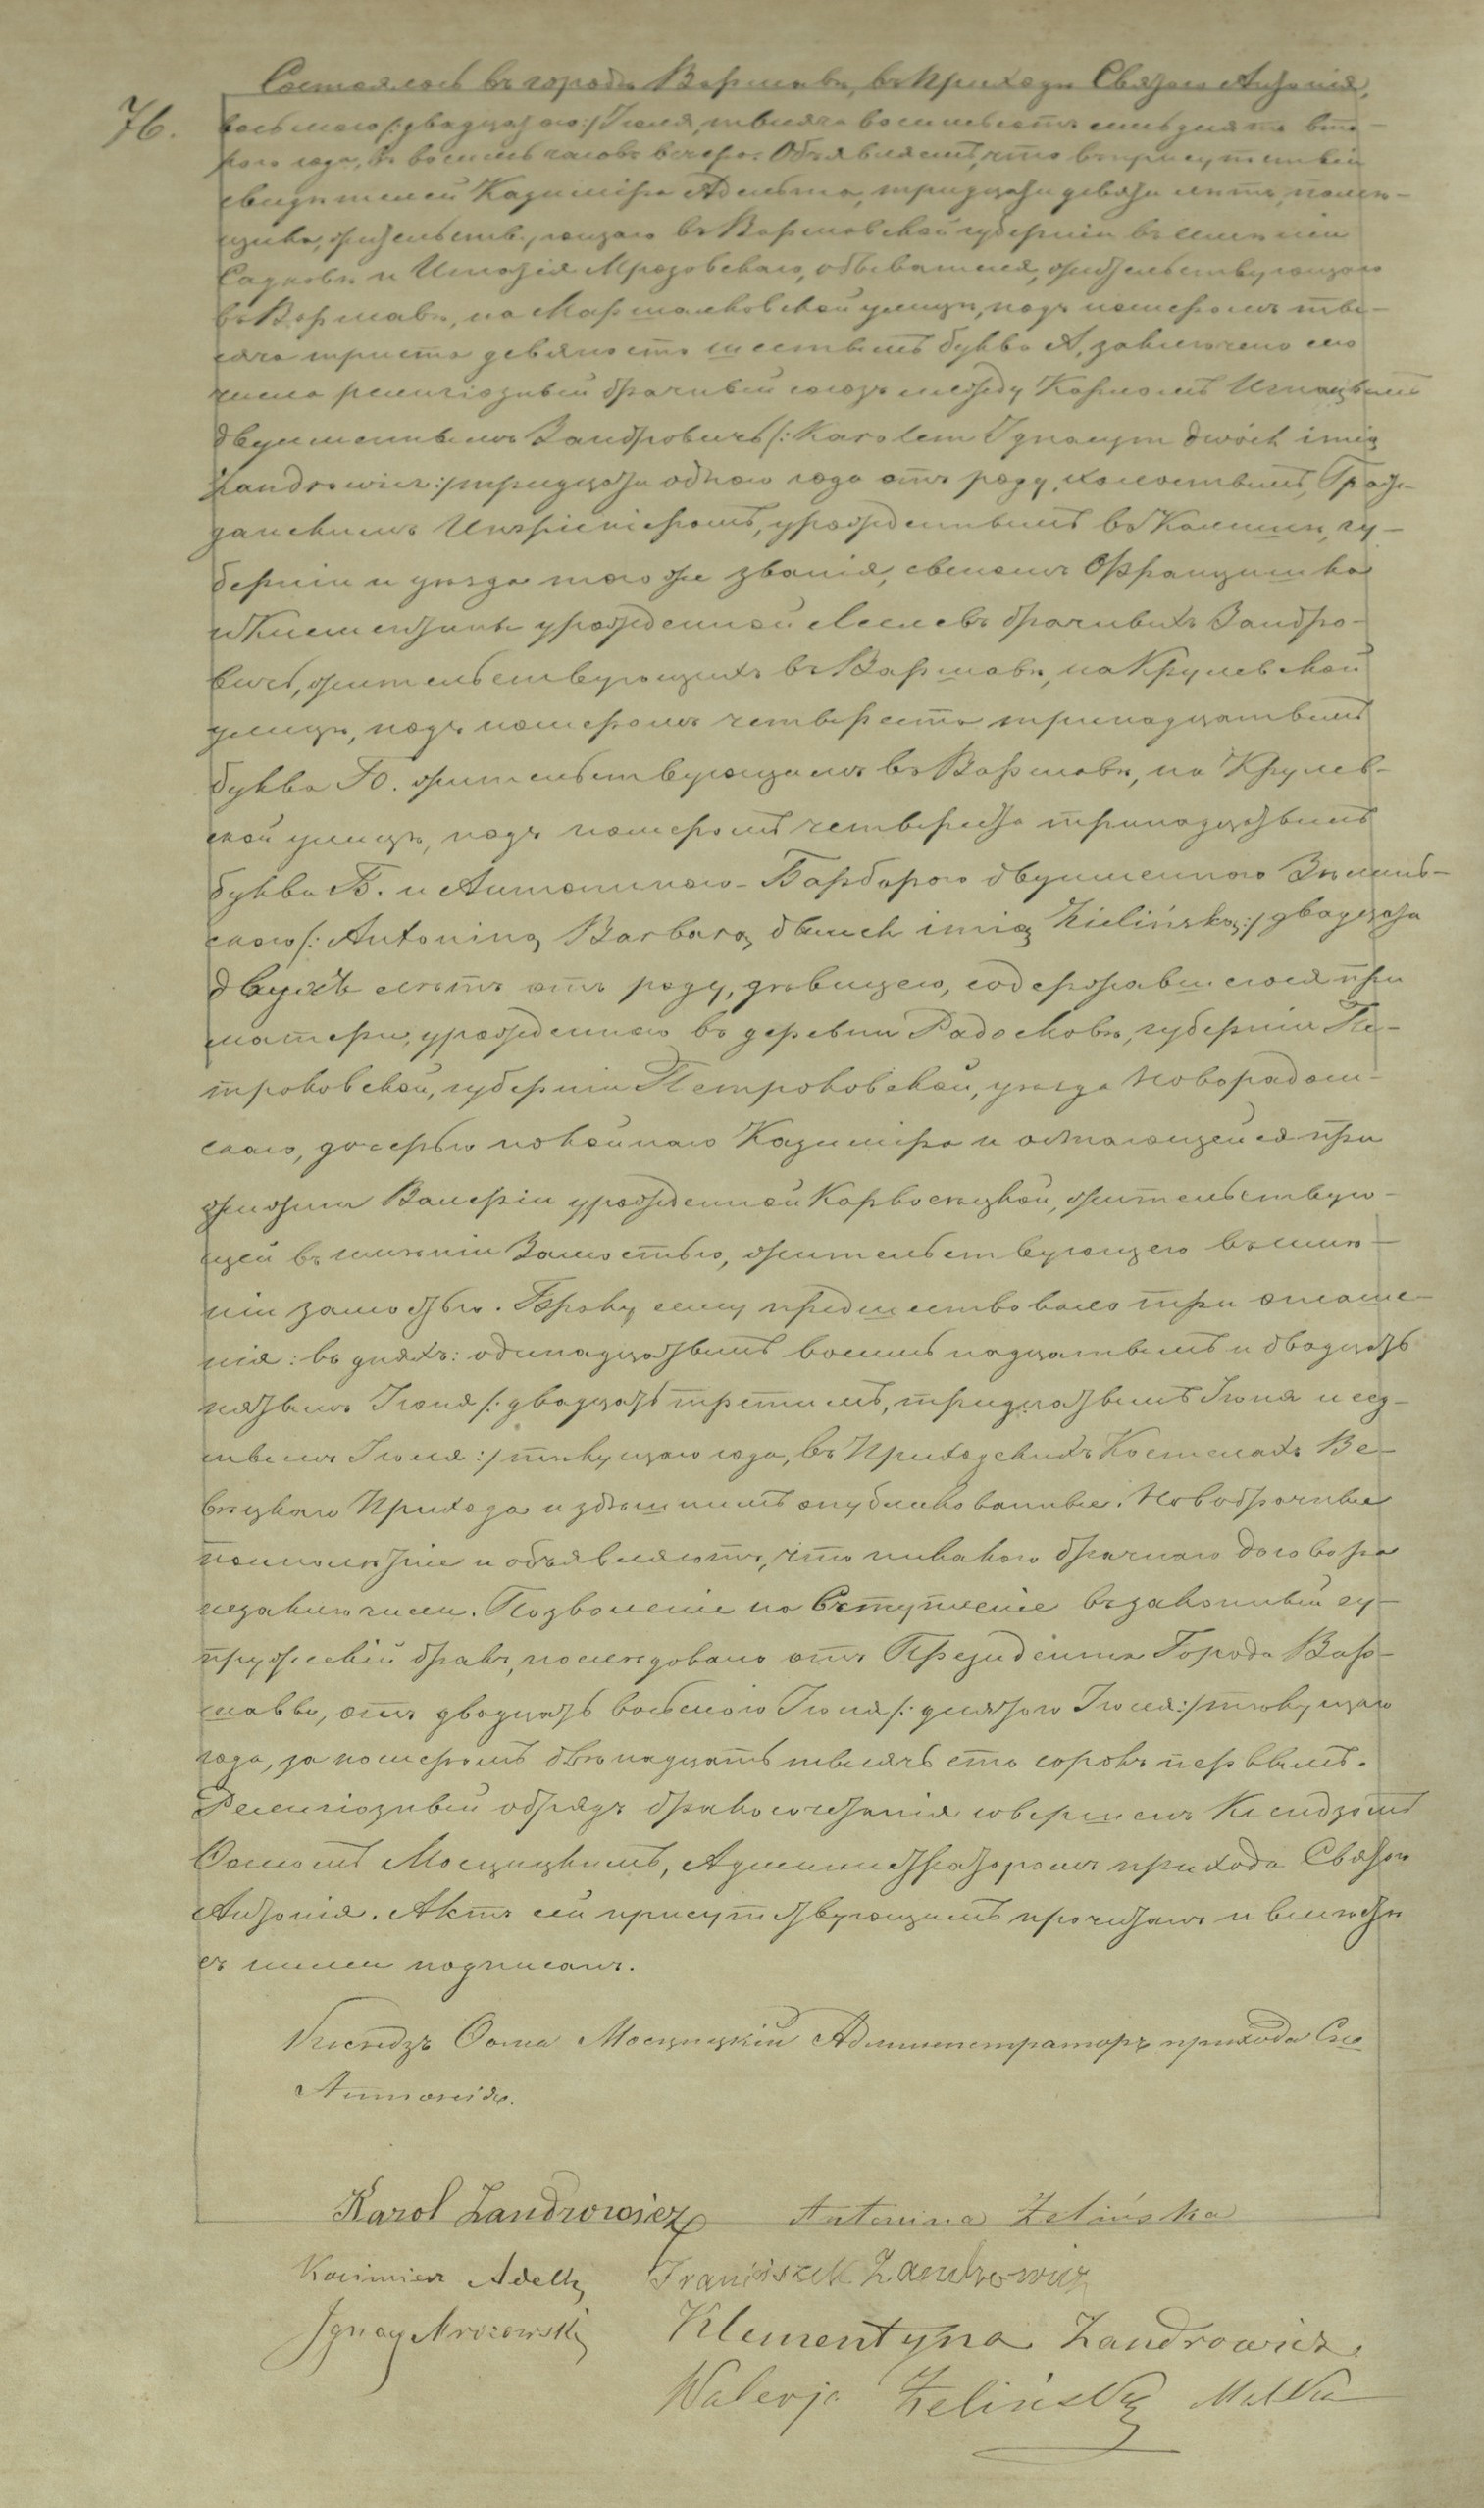 Состоялось въ городѣ Варшавѣ, въ Приходѣ Святаго Антонія,
76.
восьмаго /:двадцатаго:/ Іюля, тысяча восемьсотъ семьдесятъ вто-
раго года, въ восемь часовъ вечера. Объявляемъ, что въ присутствіи
свидѣтелей Казиміра Адельта, тридцати девяти лѣтъ, помѣ-
щика, жительствующаго въ Варшавской губерніи въ имѣніи
Садковѣ и Игнатія Мрозовскаго, обывателя, жительствующаго
въ Варшавѣ, на Маршалковской улицѣ, подъ номеромъ ты-
сяча триста девяносто шестымъ буква А, заключено сего
числа религіозный брачный союзъ между Карломъ Игнацымъ
двуименнымъ Зандровичъ /:Karolem Ignacym dwóch imią
Zandrowicz:/ тридцати одного года отъ роду, холостымъ, Граж-
данскимъ Инжиніеромъ, урожденнымъ въ Калишѣ, гу-
берніи и уѣзда того же званія, сыномъ Францишка
и Клементины урожденной Лесле въ брачныхъ Зандро-
вичъ, жительствующихъ въ Варшавѣ, на Крулевской
улицѣ, подъ номеромъ четыреста тринадцатымъ
буква Б. жительствующимъ въ Варшавѣ, на Крулев-
ской улицѣ, подъ номеромъ четыреста тринадцатымъ
буква Б. и Антониною-Барбарою двуименною Зѣлинь-
скою /:Antoniną Barbarą dwuch imią Zielińską:/ двадцати
двухъ лѣтъ отъ роду, дѣвицею, содержавшеюся при
матери, урожденною въ деревни Радосковѣ, губерніи Пе-
троковской, губерніи Петроковской, уѣзда Новорадом-
скаго, дочерью покойнаго Казиміра и остающейся при
жизни Валеріи урожденной Карвосѣцкой, жительствую-
щей въ имѣніи Замостью, жительствующею въ имѣ-
ніи Замостью. Браку сему предшествовало три оглаше-
нія: въ дняхъ: одинадцатымъ восемнадцатымъ и двадцать
пятымъ Іюня /:двадцать третимъ, тридцатымъ Іюня и сед-
мымъ Іюля:/ текущаго года, въ Приходскихъ Костелахъ Ве-
вѣцкаго Прихода и здѣшнимъ опубликованные. Новобрачные
помолетніе и объявляютъ, что никакого брачнаго договора
незаключили. Позволеніе на вступленіе въ законный су-
пружескій бракъ, последовало отъ Президента Города Вар-
шавы, отъ двадцать восьмаго Іюня /:десятаго Іюля:/ текущаго
года, за номеромъ двѣнадцать тысячъ сто сорокъ первымъ.
Религіозный обрядъ бракосочетанія совершенъ Ксендзомъ
Ѳомомъ Мосцицкимъ, Администраторомъ прихода Святаго
Антонія. Актъ сей присутствующимъ прочитанъ и вмѣстѣ
съ ними подписанъ.
Ксендзъ Ѳома Мосцицкій Администраторъ прихода Сво
Антонія.
Karol Zandrowicz Antonina Zelińska
Kazimierz Adelt Franciszek Zandrowicz
Ignacy Mrozowski Klementyna Zandrowicz.
Walerja Zelińska Matka